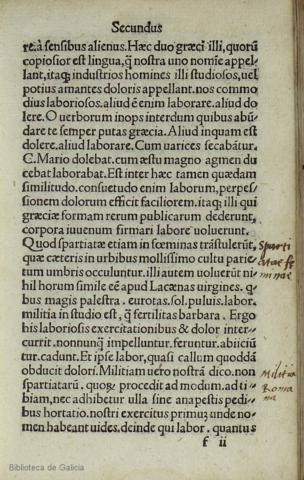 Secundus
re. à sensibus alienus. Hæc duo græci illi, quorũ
copiosior est lingua, q̃ nostra uno nomĩe appel-
lant, itaq; industrios homines illi studiosos, uel
potius amantes doloris appellant. nos commo
dius laboriosos. aliud ẽ enim laborare. aliud do
lere. O uerborum inops interdum quibus abũ-
dare te semper putas græcia. Aliud inquam est
dolere. aliud laborare. Cum uarices secabãtur.
C. Mario dolebat. cum æstu magno agmen du
cebat laborabat. Est inter hæc tamen quædam
similitudo. consuetudo enim laborum, perpes/
sionem dolorum efficit faciliorem. itaq; illi qui
græciæ formam rerum publicarum dederunt,
corpora iuuenum firmari labore uoluerunt.
Quod spartiatæ etiam in fœminas trãstulerũt,
quæ cæteris in urbibus mollissimo cultu parie
tum umbris occuluntur. illi autem uoluerũt ni
hil horum simile eẽ apud Lacænas uirgines. q̃
bus magis palestra. eurotas. sol. puluis. labor.
militia in studio est, q̃ fertilitas barbara. Ergo
his laboriosis exercitationibus & dolor inter-
currit. nonnunq̃ impelluntur. feruntur. abiiciũ
tur. cadunt. Et ipse labor, quasi callum quoddã
obducit dolori. Militiam uero nostrã dico. non
spartiatarũ. quoꝝ procedit ad modum. ad ti
biam, nec adhibetur ulla sine anapestis pedi-
bus hortatio. nostri exercitus primũ unde no-
men habeant uides. deinde qui labor. quantus
f ii
Sparti
atæ fœ
minæ
Militia
Roma
na
Biblioteca de Galicia